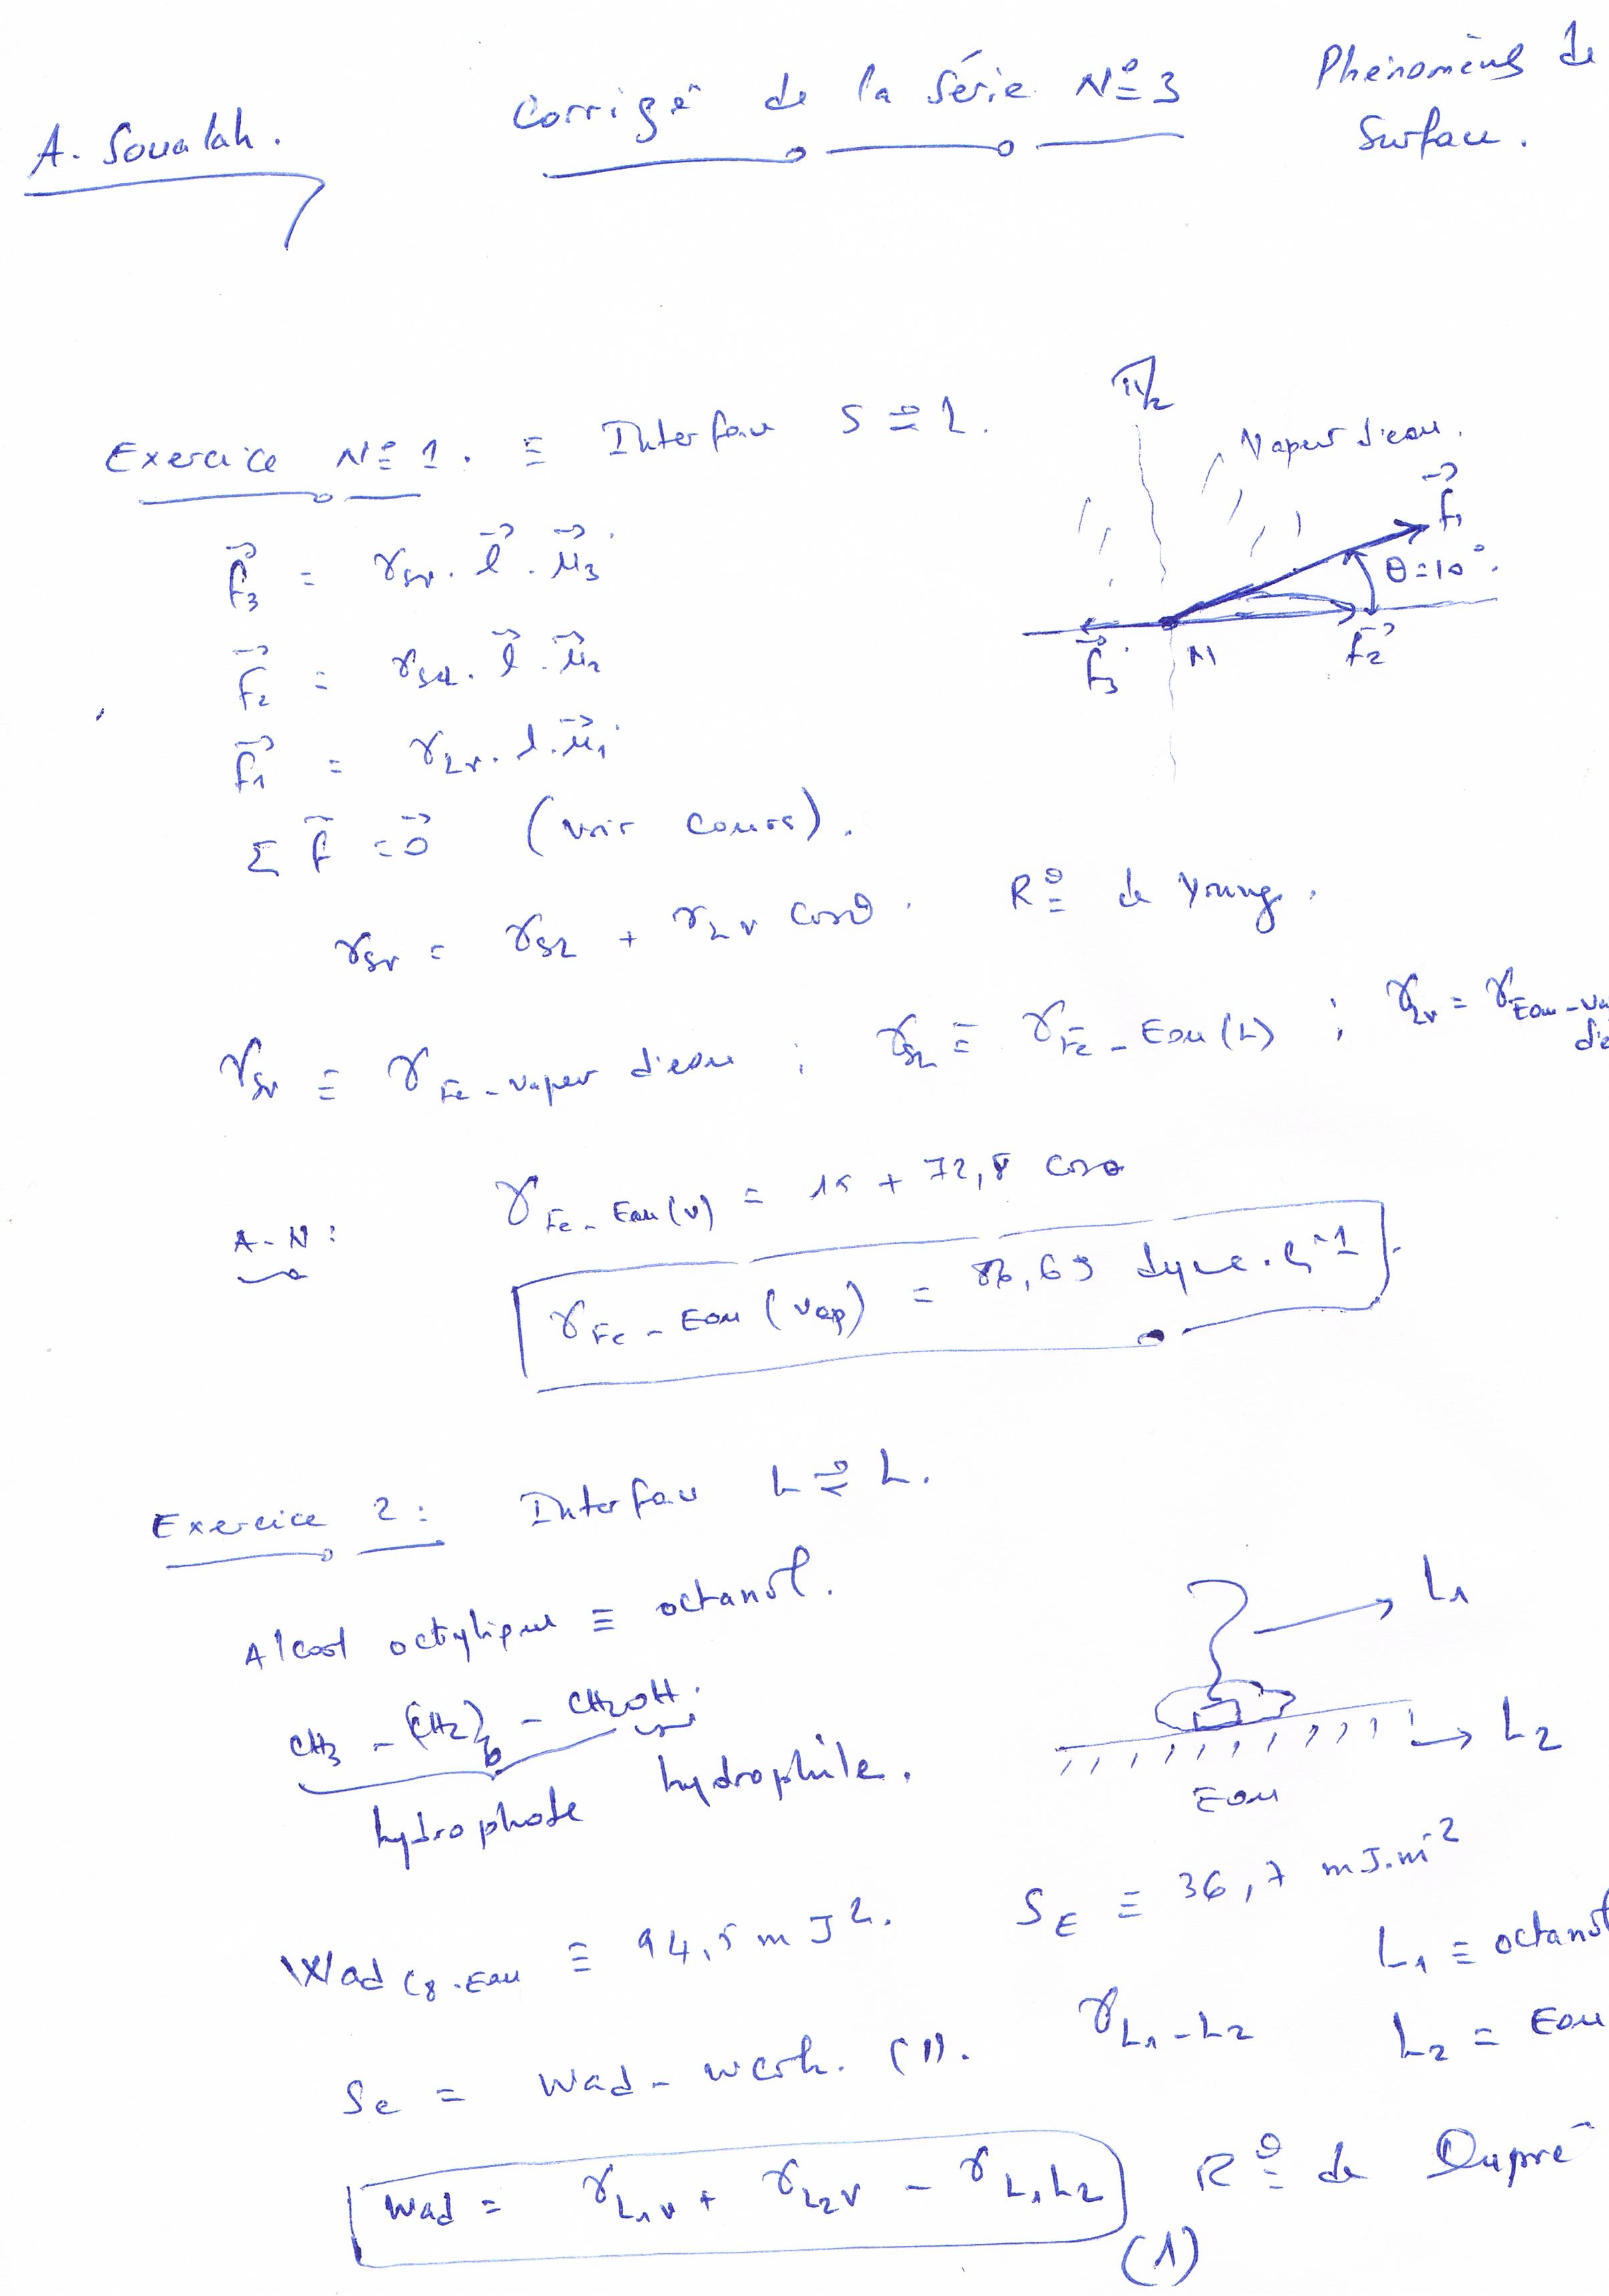 A. Soualah.
Corrigé de la Série N° 3
Phénomèns de
Surface.
Exercice N° 1. ≡ Interface S ⇌ L.
π/2
Vapeur d'eau.
f⃗₁
θ=10°.
f⃗₃ M f⃗₂
f⃗₃ = γsv. l⃗. μ⃗₃
f⃗₂ = γsl. l⃗. μ⃗₂
f⃗₁ = γLv. l. μ⃗₁
Σ f⃗ = 0⃗ (voir cours).
γsv = γsL + γLv cosθ. R° de Young.
γsv ≡ γFe-vapeur d'eau ; γsL ≡ γFe-Eau(L) ; γLv = γEau-va
d'e
A-N: γFe-Eau(v) = 15 + 72,8 cosθ
γFe-Eau(vap) = 86,69 dyne.
Exercice 2: Interface L ⇌ L.
Alcool octylique ≡ octanol.
CH₃ - (CH₂)₆ - CH₂OH.
hydrophobe hydrophile.
L₁
L₂
Eau
Wad C8-Eau ≡ 94,5 mJ². SE ≡ 36,7 mJ.m⁻²
L₁ ≡ octanol
γL₁-L₂
L₂ = Eau
Se = Wad - wcoh. (1).
Wad = γL₁v + γL₂v - γL₁L₂ R° de Dupré
(1)